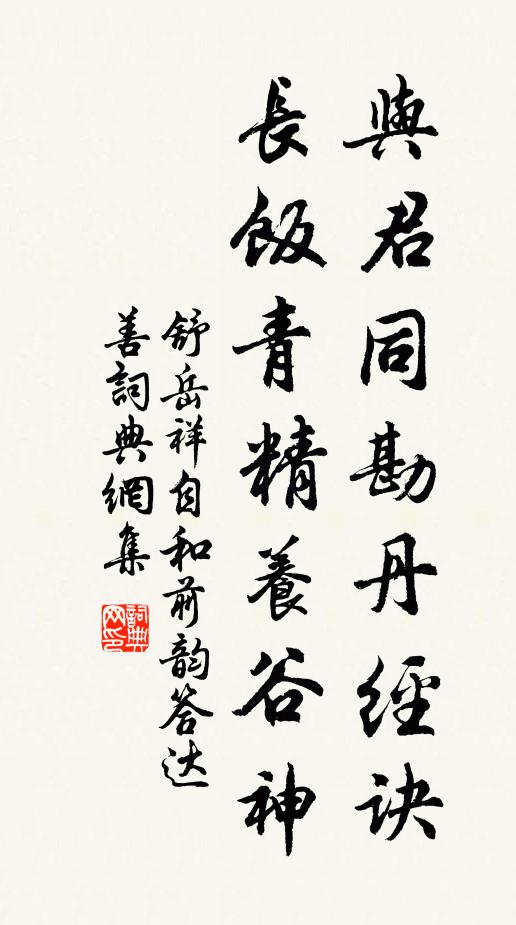 與君同勘丹經訣
長飯青精養谷神
舒岳祥自和前韵答达
善詞典網集
詞典
网印